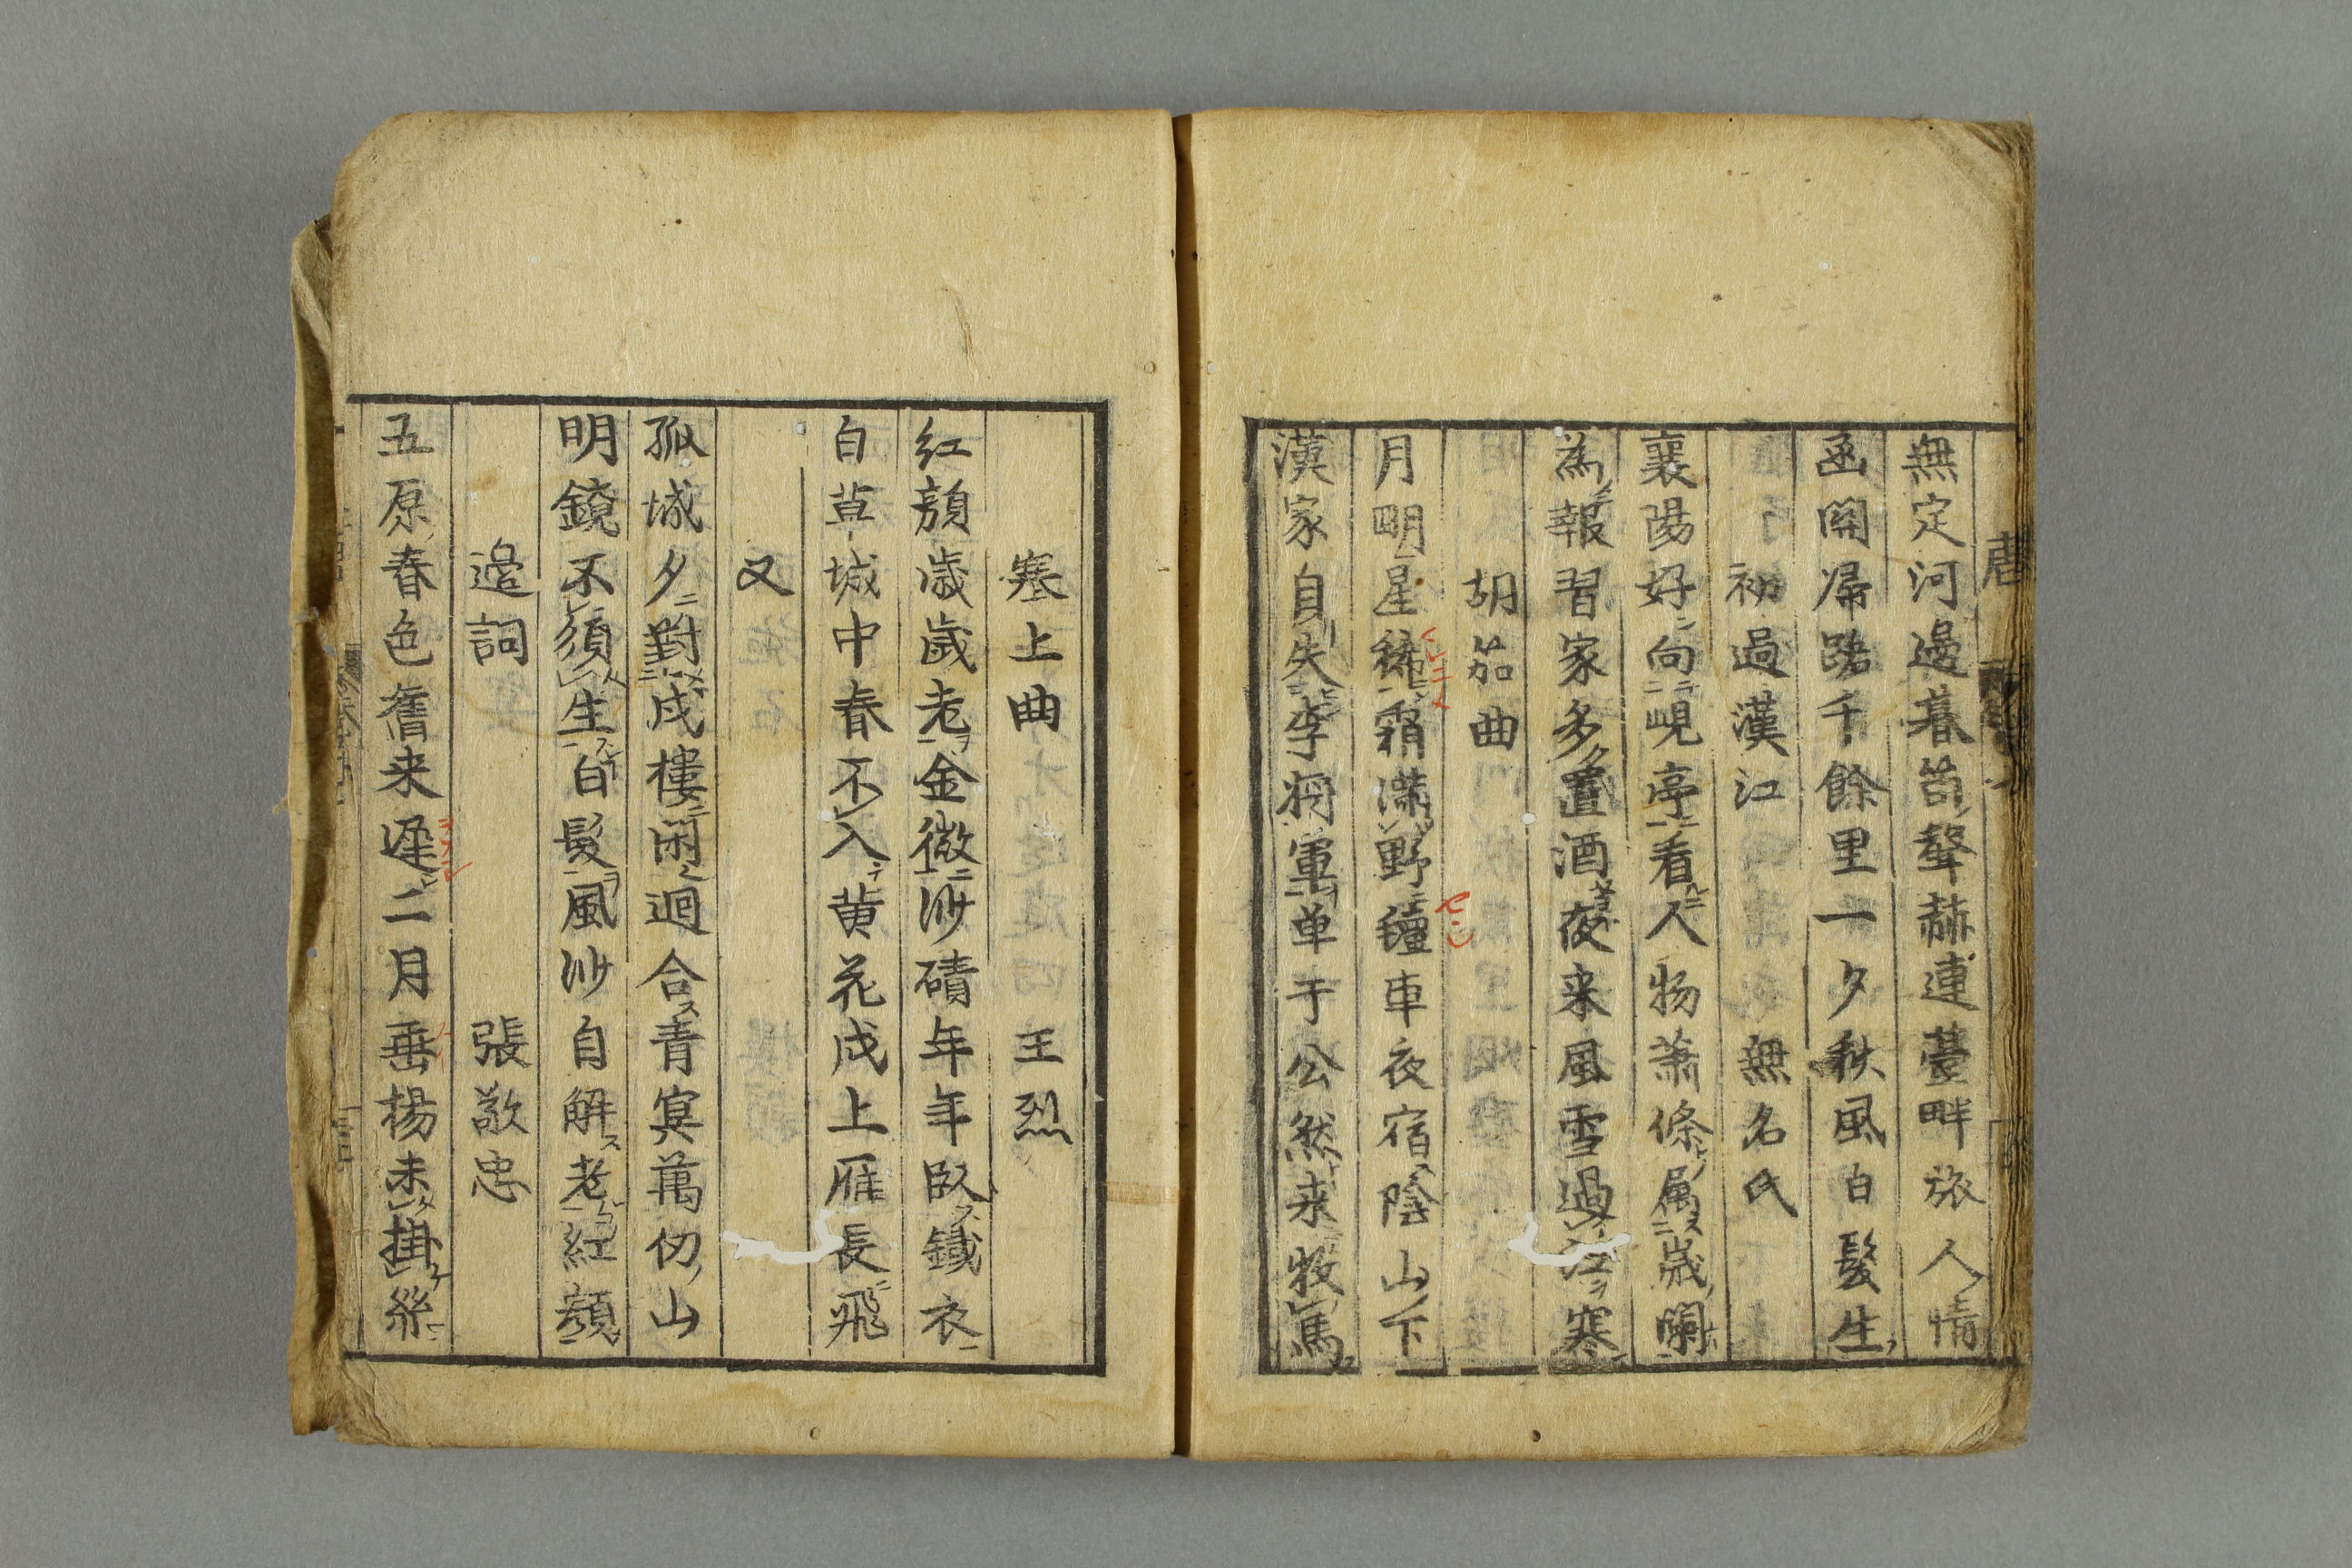 無定河邊暮笳聲赫連臺畔旅人情
函關歸路千餘里一夕秋風白髮生
初過漢江 無名氏
襄陽好向峴亭看人物蕭條属歳闌
為報習家多置酒夜来風雪過江寒
胡笳曲
月明星稀霜滿野氊車夜宿陰山下
漢家自失李將軍単于公然来牧馬
塞上曲 王烈
紅顔歳歳老金微沙磧年年臥鐵衣
白草城中春不入黄花戍上雁長飛
又
孤城夕對戍樓閑迴合青冥萬仞山
明鏡不須生白髮風沙自解老紅顔
邉詞 張敬忠
五原春色舊来遲二月垂楊未掛絲